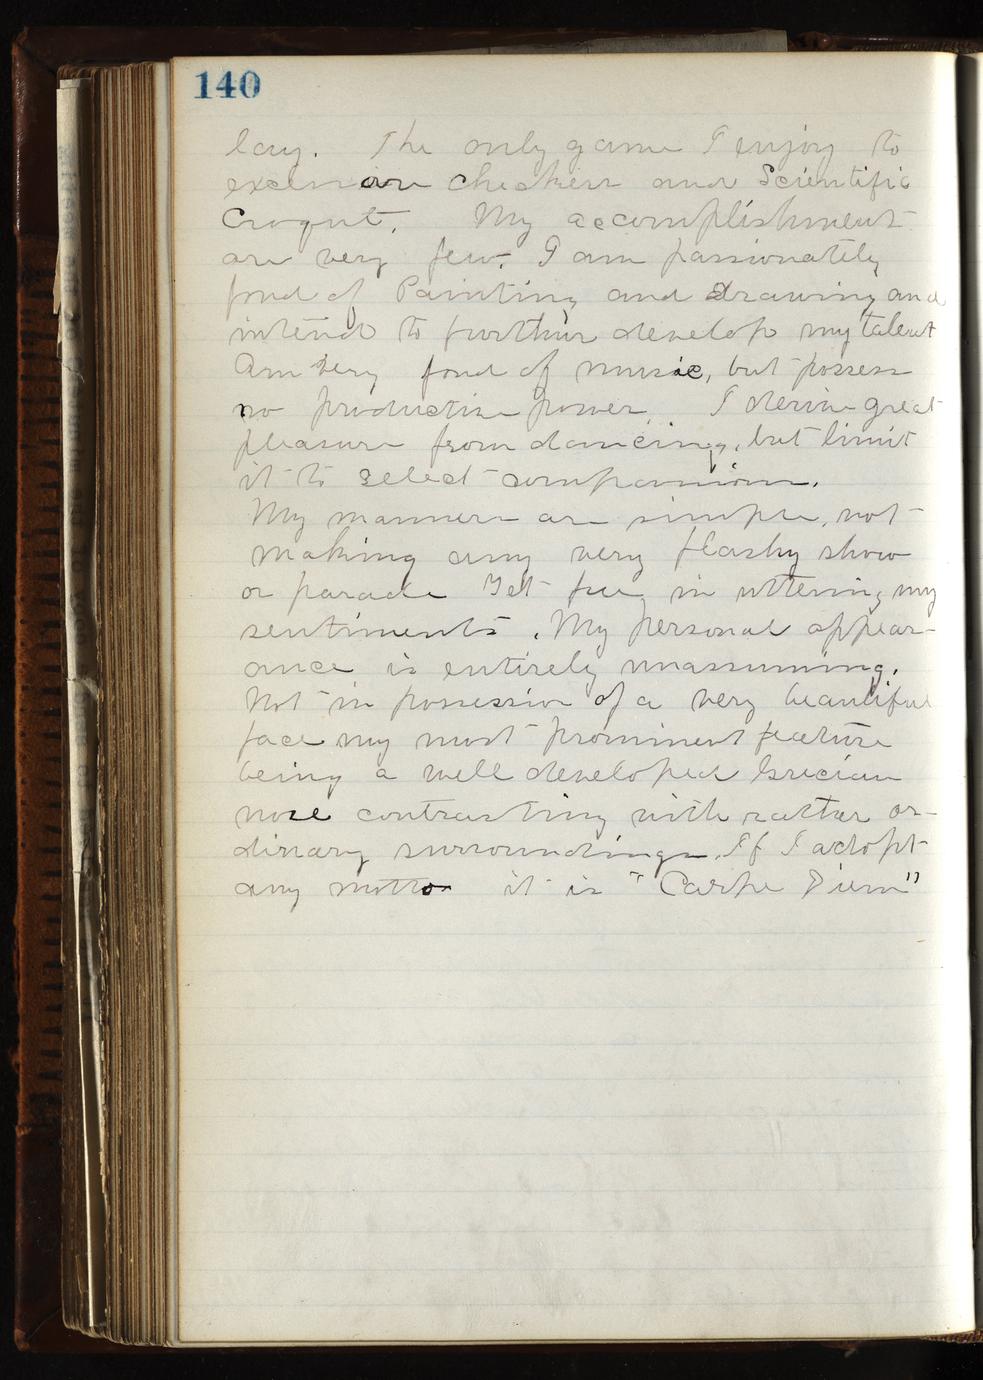 140
lay. The only game I enjoy to
excess are checkers and Scientific
Croquet. My accomplishment
are very few. I am passionately
fond of Painting and Drawing and
intend to further develop my talent
Am very fond of music, but possess
no productive power. I derive great
pleasure from dancing, but limit
it to select companions.
My manners are simple, not
making any very flashy show
or parade Yet free in uttering my
sentiments. My personal appear-
ance is entirely unassuming.
Not in possession of a very beautiful
face my most prominent feature
being a well developed Grecian
nose contrasting with rather or-
dinary surroundings. If I adopt
any motto it is "Carpe Diem"